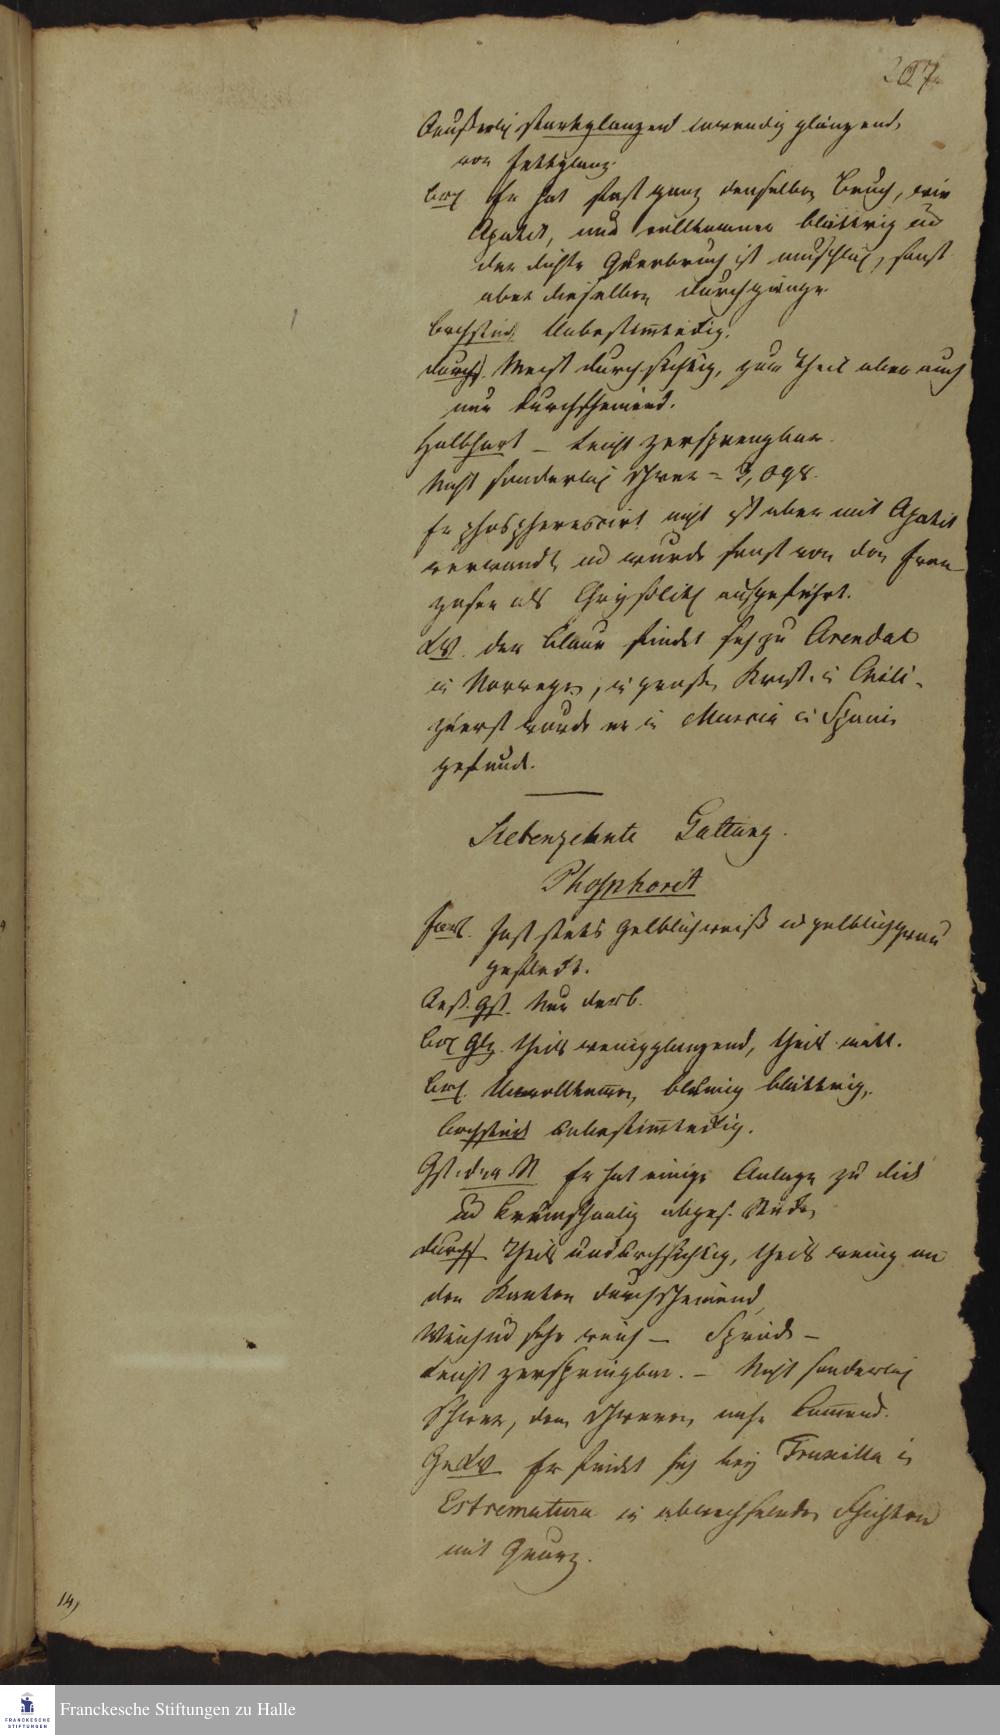 207.
Aeußerlich starkglänzend inwendig glänzend,
von Fettglanz.
Brch Er hat fast ganz denselben Bruch, wie
Apatit, und vollkommen blättrig und
der dichte Querbruch ist muschlich, sonst
aber dieselben Durchgänge
Brchstück. Unbestimmteckig.
Durchs. Meist durchsichtig, zum Theil aber auch
nur durchscheinend.
Halbhart – Leicht zersprengbar.
Nicht sonderlich schwer = 3,098.
Er phosphorescirt nicht ist aber mit Apatit
verwandt, und wurde sonst von den Fran-
zosen als Chrysolith aufgeführt.
LW. der blaue findet sich zu Arendal
in Norwegen, in großen Krist. in Chili,
zuerst wurde er in Murcia in Spanien
gefunden.
Siebenzehnte Gattung.
Phosphorit
Farb. Fast stets gelblichweiß und gelblichgrau
gefleckt.
Aeß. Gst. Nur derb.
Brch Glz. theils wenigglänzend, theils matt.
Brch. Unvollkommen, blumig blättrig,
Brchstück unbestimmteckig.
Gst. der St Er hat einige Anlage zu dick
und krummschaalig abges. Stücken
Durchs Theils undurchsichtig, theils wenig an
den Kanten durchscheinend,
Weich und sehr weich – Spröde –
Leicht zerspringbar. – Nicht sonderlich
schwer, dem schweren nahe kommend.
Er findet sich bey Truxilla in
Estrematura in abwechselnden Schichten
mit Quarz.
14,
FRANCKESCHE
STIFTUNGEN
Franckesche Stiftungen zu Halle